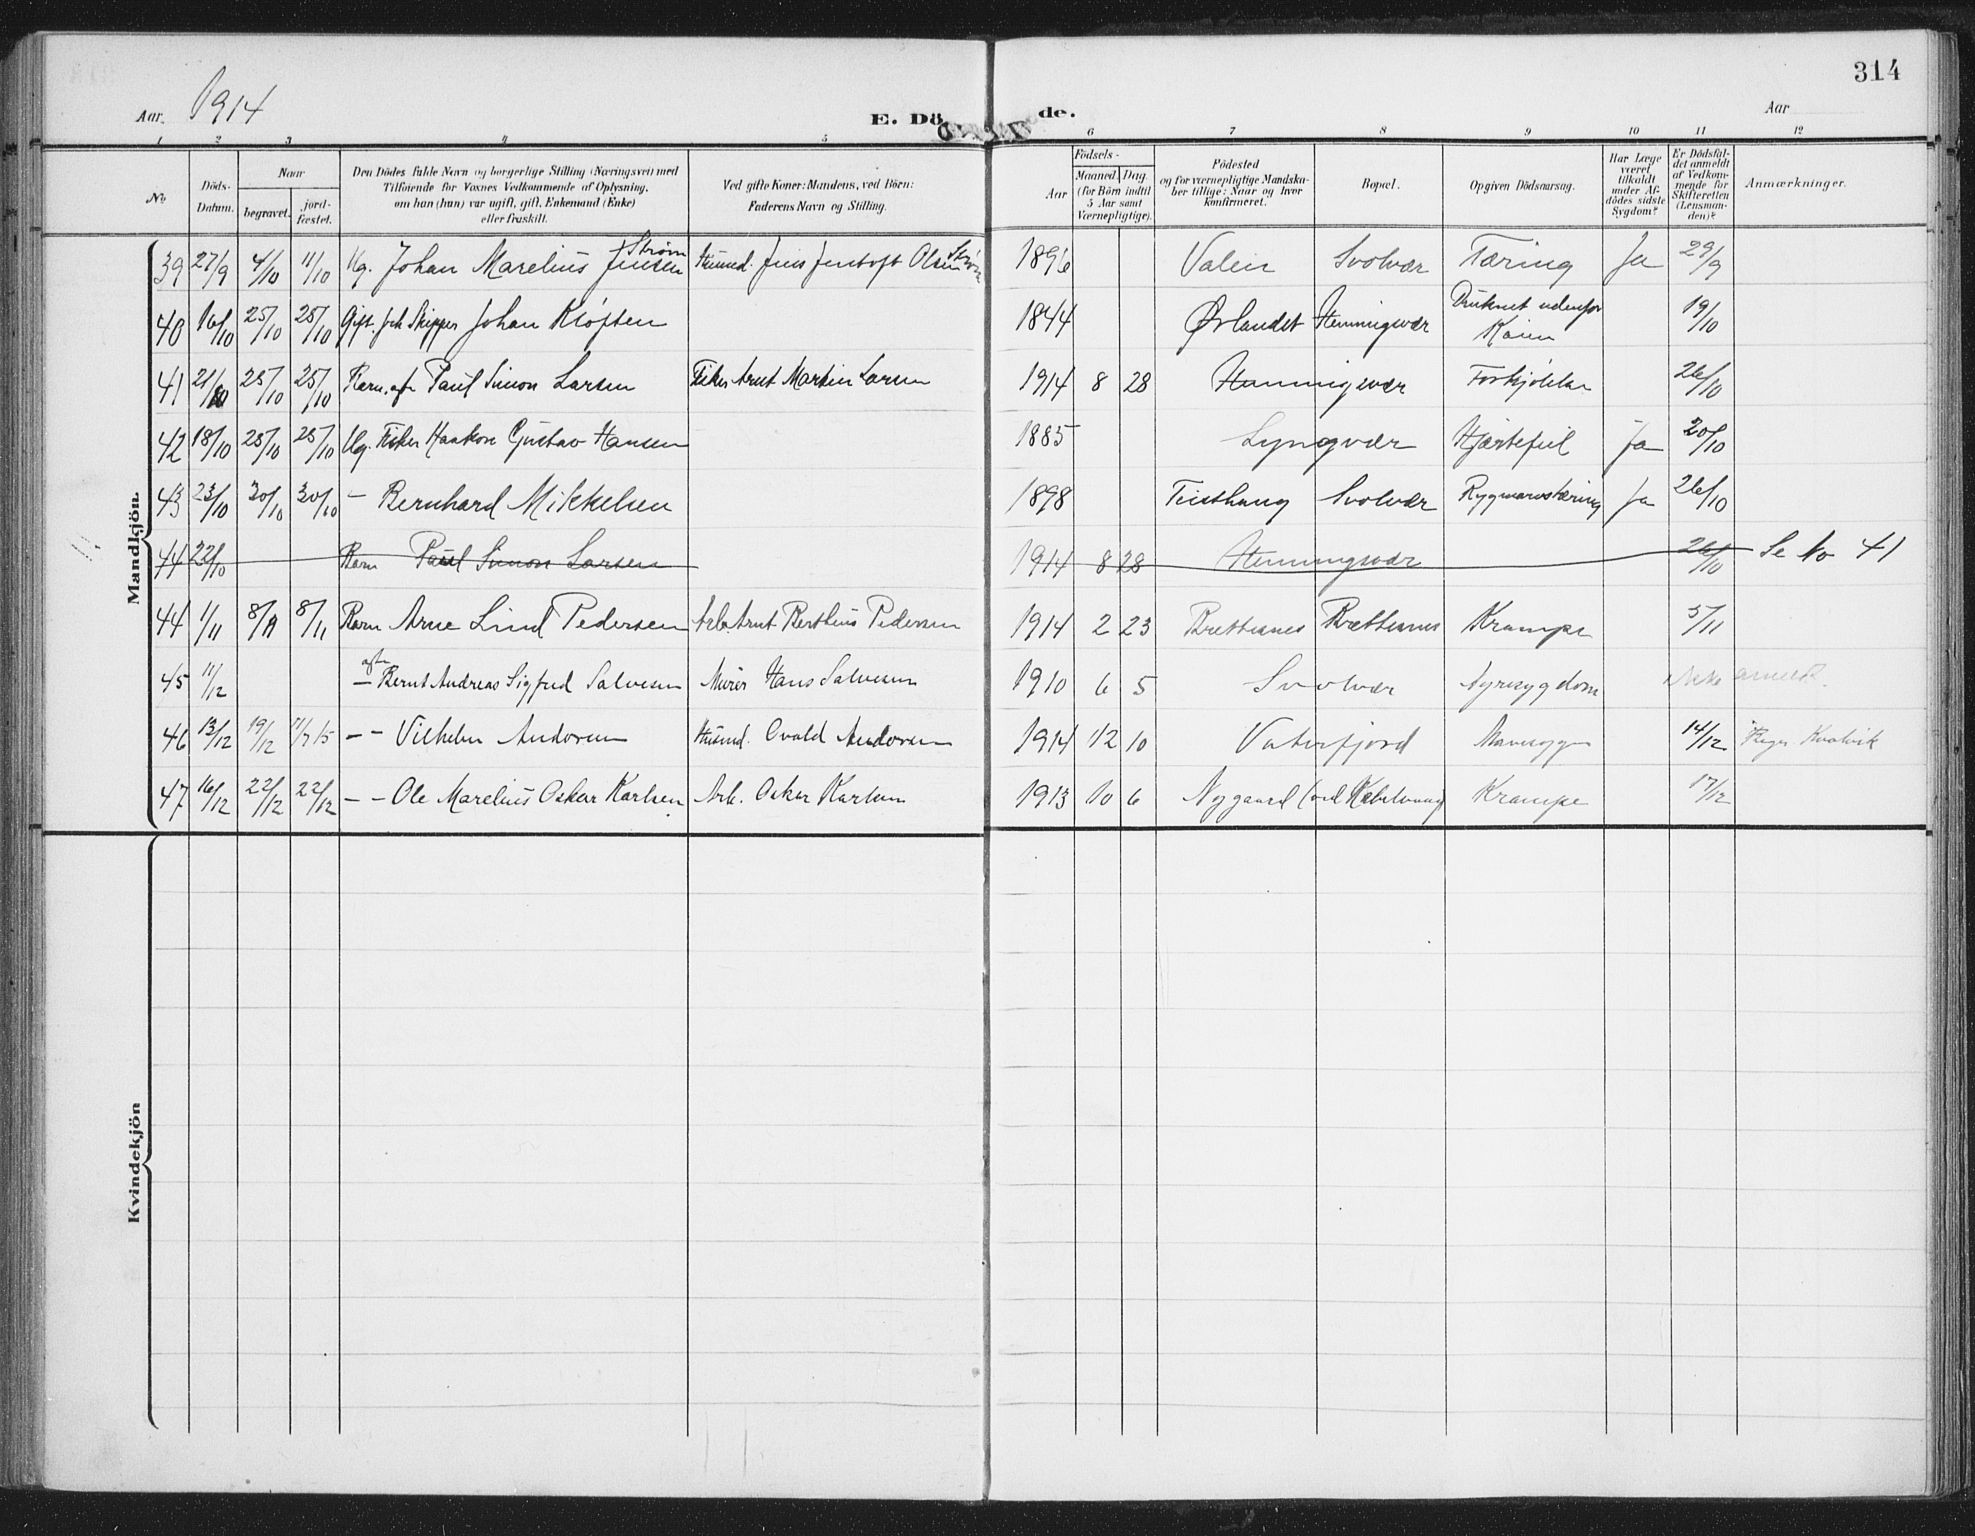 314
Aar 1914
E. Döde.
Aar
1 2 3 4 5 6 7 8 9 10 11 12
No
Döds-Datum.
Naar
begravet.
jordfæstet.
Den Dödes fulde Navn og borgerlige Stilling (Næringsvei) med
Tilföiende for Voxnes Vedkommende af Oplysning,
om han (hun) var ugift, gift, Enkemand (Enke)
eller fraskilt.
Ved gifte Koner: Mandens, ved Börn:
Faderens Navn og Stilling.
Födsels-
Aar
Maaned. Dag.
(for Börn indtil
5 Aar samt
Værnepligtige).
Födested
og for værnepligtige Mandska-
ber tillige: Naar og hvor
konfirmeret.
Bopæl.
Opgiven Dödsaarsag.
Har Læge
været
tilkaldt
under Af-
dödes sidste
Sygdom?
Er Dödsfal-
det anmeldt
af Vedkom-
mende for
Skifteretten
(Lensman-
den)?
Anmærkninger.
Mandkjön.
39 27/9 4/10 11/10 Ug. Johan Marelius Jensen Strøm Husmd. Jens Jentoft Olsen Strøm 1896 Svolvær Tæring Ja 29/9
40 16/10 25/10 25/10 Gift. fhv. Skipper Johan Kløften 1844 Ørlandet Henningsvær Druknet udenfor Kaien 19/10
41 21/10 25/10 25/10 Barn. Paul Simon Larsen Fisker Arnt Martin Larsen 1914 8 28 Henningsvær Forkjølelse 26/10
42 18/10 25/10 25/10 Ug. Fisker Haakon Gustav Hansen 1885 Lyngvær Hjærtefeil Ja 20/10
43 23/10 30/10 30/10 – Bernhard Mikkelsen 1898 Svolvær Rygmarvstæring Ja 26/10
44 22/10 Barn Paul Simon Larsen 1914 8 28 Henningsvær 26/10 Se No 41
44 1/11 8/11 8/11 Barn Arne Lind Pedersen Arb. Arnt Berthius Pedersen 1914 2 23 Brettesnes Brettesnes Krampe 5/11
45 11/12 – Bernt Andreas Sigfred Salvesen Murer Hans Salvesen 1910 6 5 Svolvær Nyresygdom ikke anmeldt.
46 13/12 19/12 – – Vilhelm Andorsen Husmd. Osvald Andorsen 1914 12 10 Vaterfjord Mavesyge 14/12
47 16/12 22/12 22/12 – – Ole Marelius Oskar Karlsen Arb. Oskar Karlsen 1913 10 6 Nygaard (ved Kabelvaag) Krampe 17/12
Kvindekjön